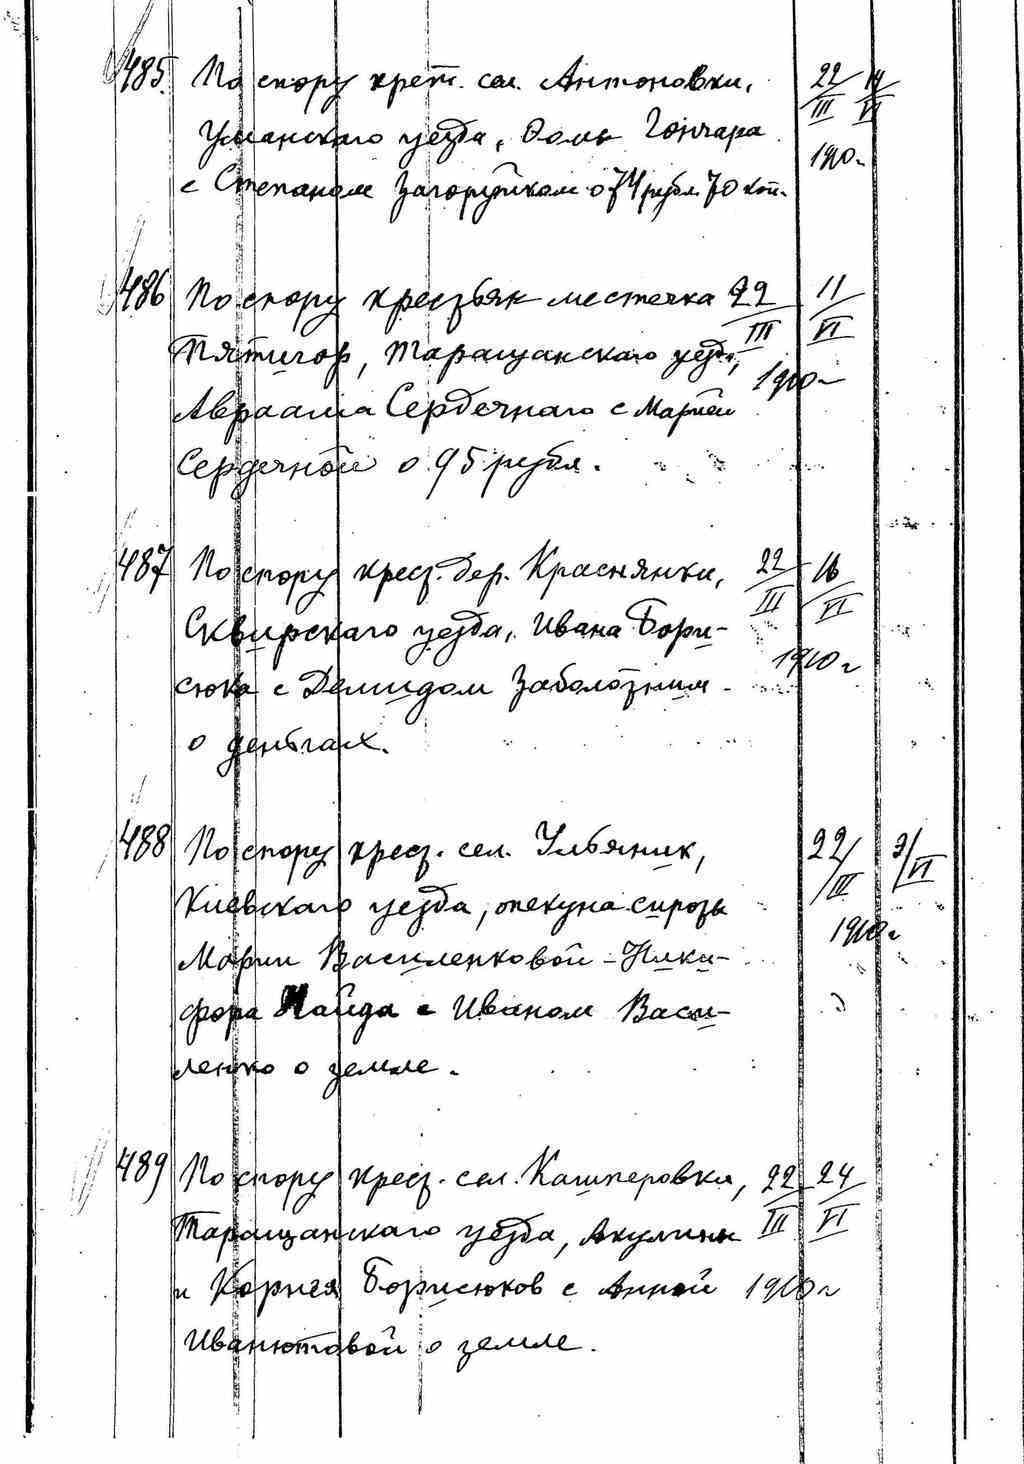 485. По спору крест. сел. Антоновки, 22/III 14/VI
Уманскаго уезда, Фомы Гончара 1910 г.
с Степаном Загоруйком о 74 рубл. 70 коп.
486 По спору крестьян местечка 22/III 11/VI
Пятигор, Таращанскаго уезда, 1910 г
Авраама Сердечнаго с Марией
Сердечной о 95 рубл.
487 По спору крест. дер. Краснянки, 22/III 16/VI
Сквирскаго уезда, Ивана Бори-
сюка с Демидом Заболотным 1910 г
о деньгах.
488 По спору крест. сел. Ульяник, 22/III 9/VI
Киевскаго уезда, опекуна сироты 1910 г
Марии Василенковой - Ники-
фора Найда с Иваном Васи-
ленко о земле.
489 По спору крест. сел. Кашперовки, 22/III 24/VI
Таращанскаго уезда, Акулины
и Корнея Борисюков с Анной 1910 г
Иванютовой о земле.